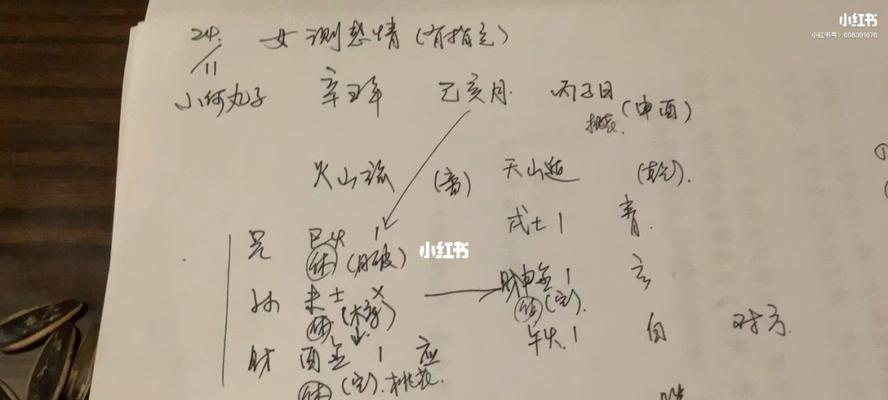 小红书
小红书号：608391676
24/11 女测感情（有指定）
小何丸子 辛丑年 己亥月 丙子日（申酉）
桃花
火山旅（离） 天山遁（乾）
兄 巳火 1 戌土 1 青
休（月破）
小红书
孙 未土 X 财申金 1 玄
（空）
午火 1 白 对方
财 酉金 1 应
休（空）桃花